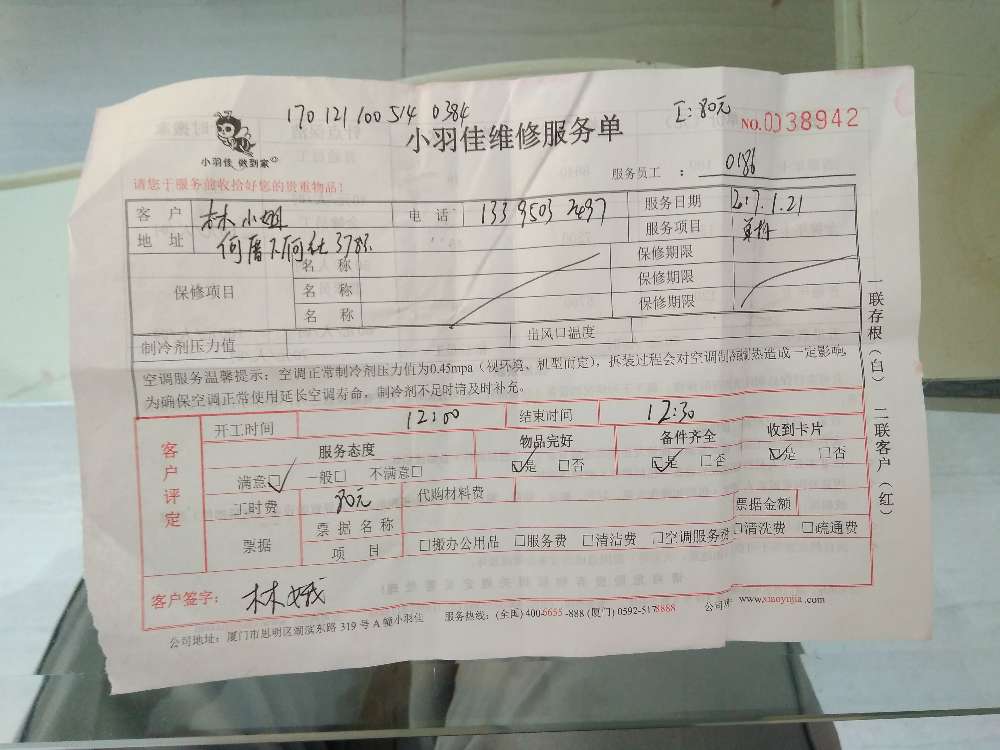 170 121 100 514 0384
工:80元
小羽佳 做到家
小羽佳维修服务单
NO.0038942
服务员工 : 0186
请您于服务前收拾好您的贵重物品!
客 户 林小姐 电 话 133 9503 2497 服务日期 2017.1.21
地 址 何厝下何社378号 服务项目
保修项目 名 称 保修期限
名 称 保修期限
名 称 保修期限
制冷剂压力值 出风口温度
空调服务温馨提示:空调正常制冷剂压力值为0.45mpa(视环境、机型而定),拆装过程会对空调制冷制热造成一定影响,
为确保空调正常使用延长空调寿命,制冷剂不足时请及时补充。
一联存根(白) 二联客户(红)
客户评定
开工时间 12:00 结束时间 12:30
服务态度 物品完好 备件齐全 收到卡片
满意☑ 一般□ 不满意□ ☑是 □否 ☑是 □否 ☑是 □否
工时费 80元 代购材料费
票据 票据名称 票据金额
项 目 □搬办公用品 □服务费 □清洁费 □空调服务费 □清洗费 □疏通费
客户签字: 林娥
公司地址:厦门市思明区湖滨东路 319 号 A 幢小羽佳 服务热线:(全国)400-6655-888 (厦门) 0592-5178888 公司网 www.xiaoyujia.com